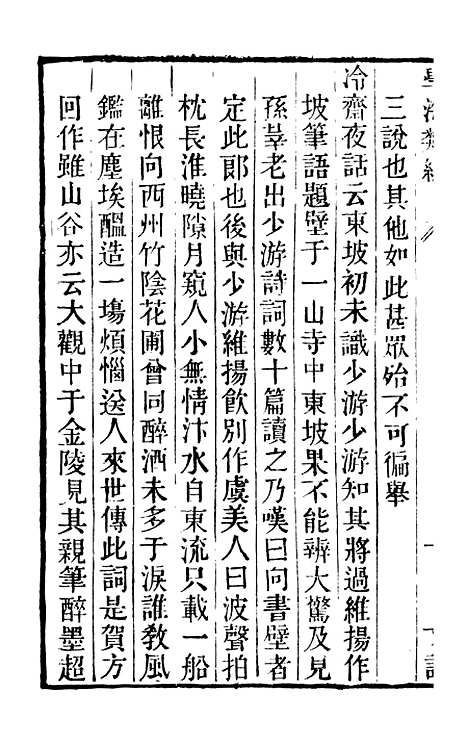 三說也其他如此甚眾殆不可徧舉
冷齋夜話云東坡初未識少游少游知其將過維揚作
坡筆語題壁于一山寺中東坡果不能辨大驚及見
孫莘老出少游詩詞數十篇讀之乃嘆曰向書壁者
定此郎也後與少游維揚飲別作虞美人曰波聲拍
枕長淮曉隙月窺人小無情汴水自東流只載一船
離恨向西州竹陰花圃曾同醉酒未多于淚誰敎風
鑑在塵埃醞造一場煩惱送人來世傳此詞是賀方
回作雖山谷亦云大觀中于金陵見其親筆醉墨超